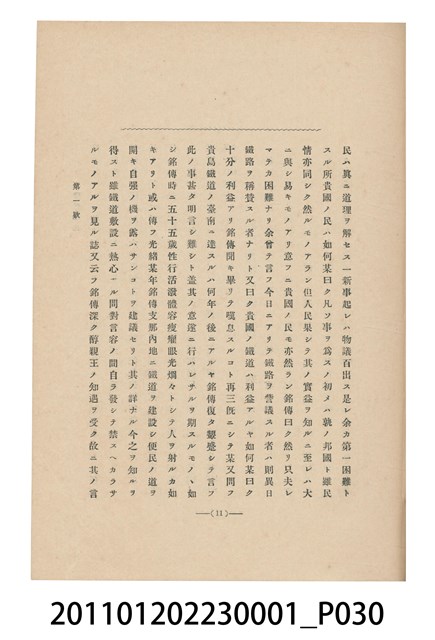 民ハ眞ニ道理ヲ解セス一新事起レハ物議百出ス是レ余カ第一困難ト
スル所貴國ノ民ハ如何某曰ク凡ソ事ヲ爲スノ初メハ孰ノ邦國ト雖民
情亦同シク然ルモノアラン但人民果シテ其ノ實益ヲ知ルニ至レハ大
ニ與シ易キモノアリ意フニ貴國ノ民モ亦然ラン銘傳曰ク然リ只夫レ
マテカ困難ナリ余曾テ言フ今日ニアリテ鐵路ヲ訾議スル者ハ則異日
鐵路ヲ稱賛スル者ナリト又曰ク貴國ノ鐵道ハ利益アルヤ如何某曰ク
十分ノ利益アリ銘傳聞キ畢リテ嘆息スルコト再三既ニシテ某又問フ
貴島鐵道ノ臺南ニ達スルハ何年ノ後ニアルヤ銘傳復タ顰蹙シテ言フ
此ノ事甚タ明言シ難シト蓋其ノ意遂ニ行ハレサルヲ期スルモノヽ如
シ銘傳時ニ五十五歲性行活潑體容痩癯眼光烱々トシテ人ヲ射ルカ如
キアリト或ハ傳フ光緖某年銘傳支那內地ニ鐵道ヲ建設シ便民ノ道ヲ
開キ自强ノ機ヲ露ハサンコトヲ建議セリト其ノ詳ナル今之ヲ知ルヲ
得スト雖鐵道敷設ニ熱心ナル問對言容ノ間自ラ發シテ禁スヘカラサ
ルモノアルヲ見ル誌又云フ銘傳深ク醇親王ノ知遇ヲ受ク故ニ其ノ言
第一號
(11)
201101202230001_P030